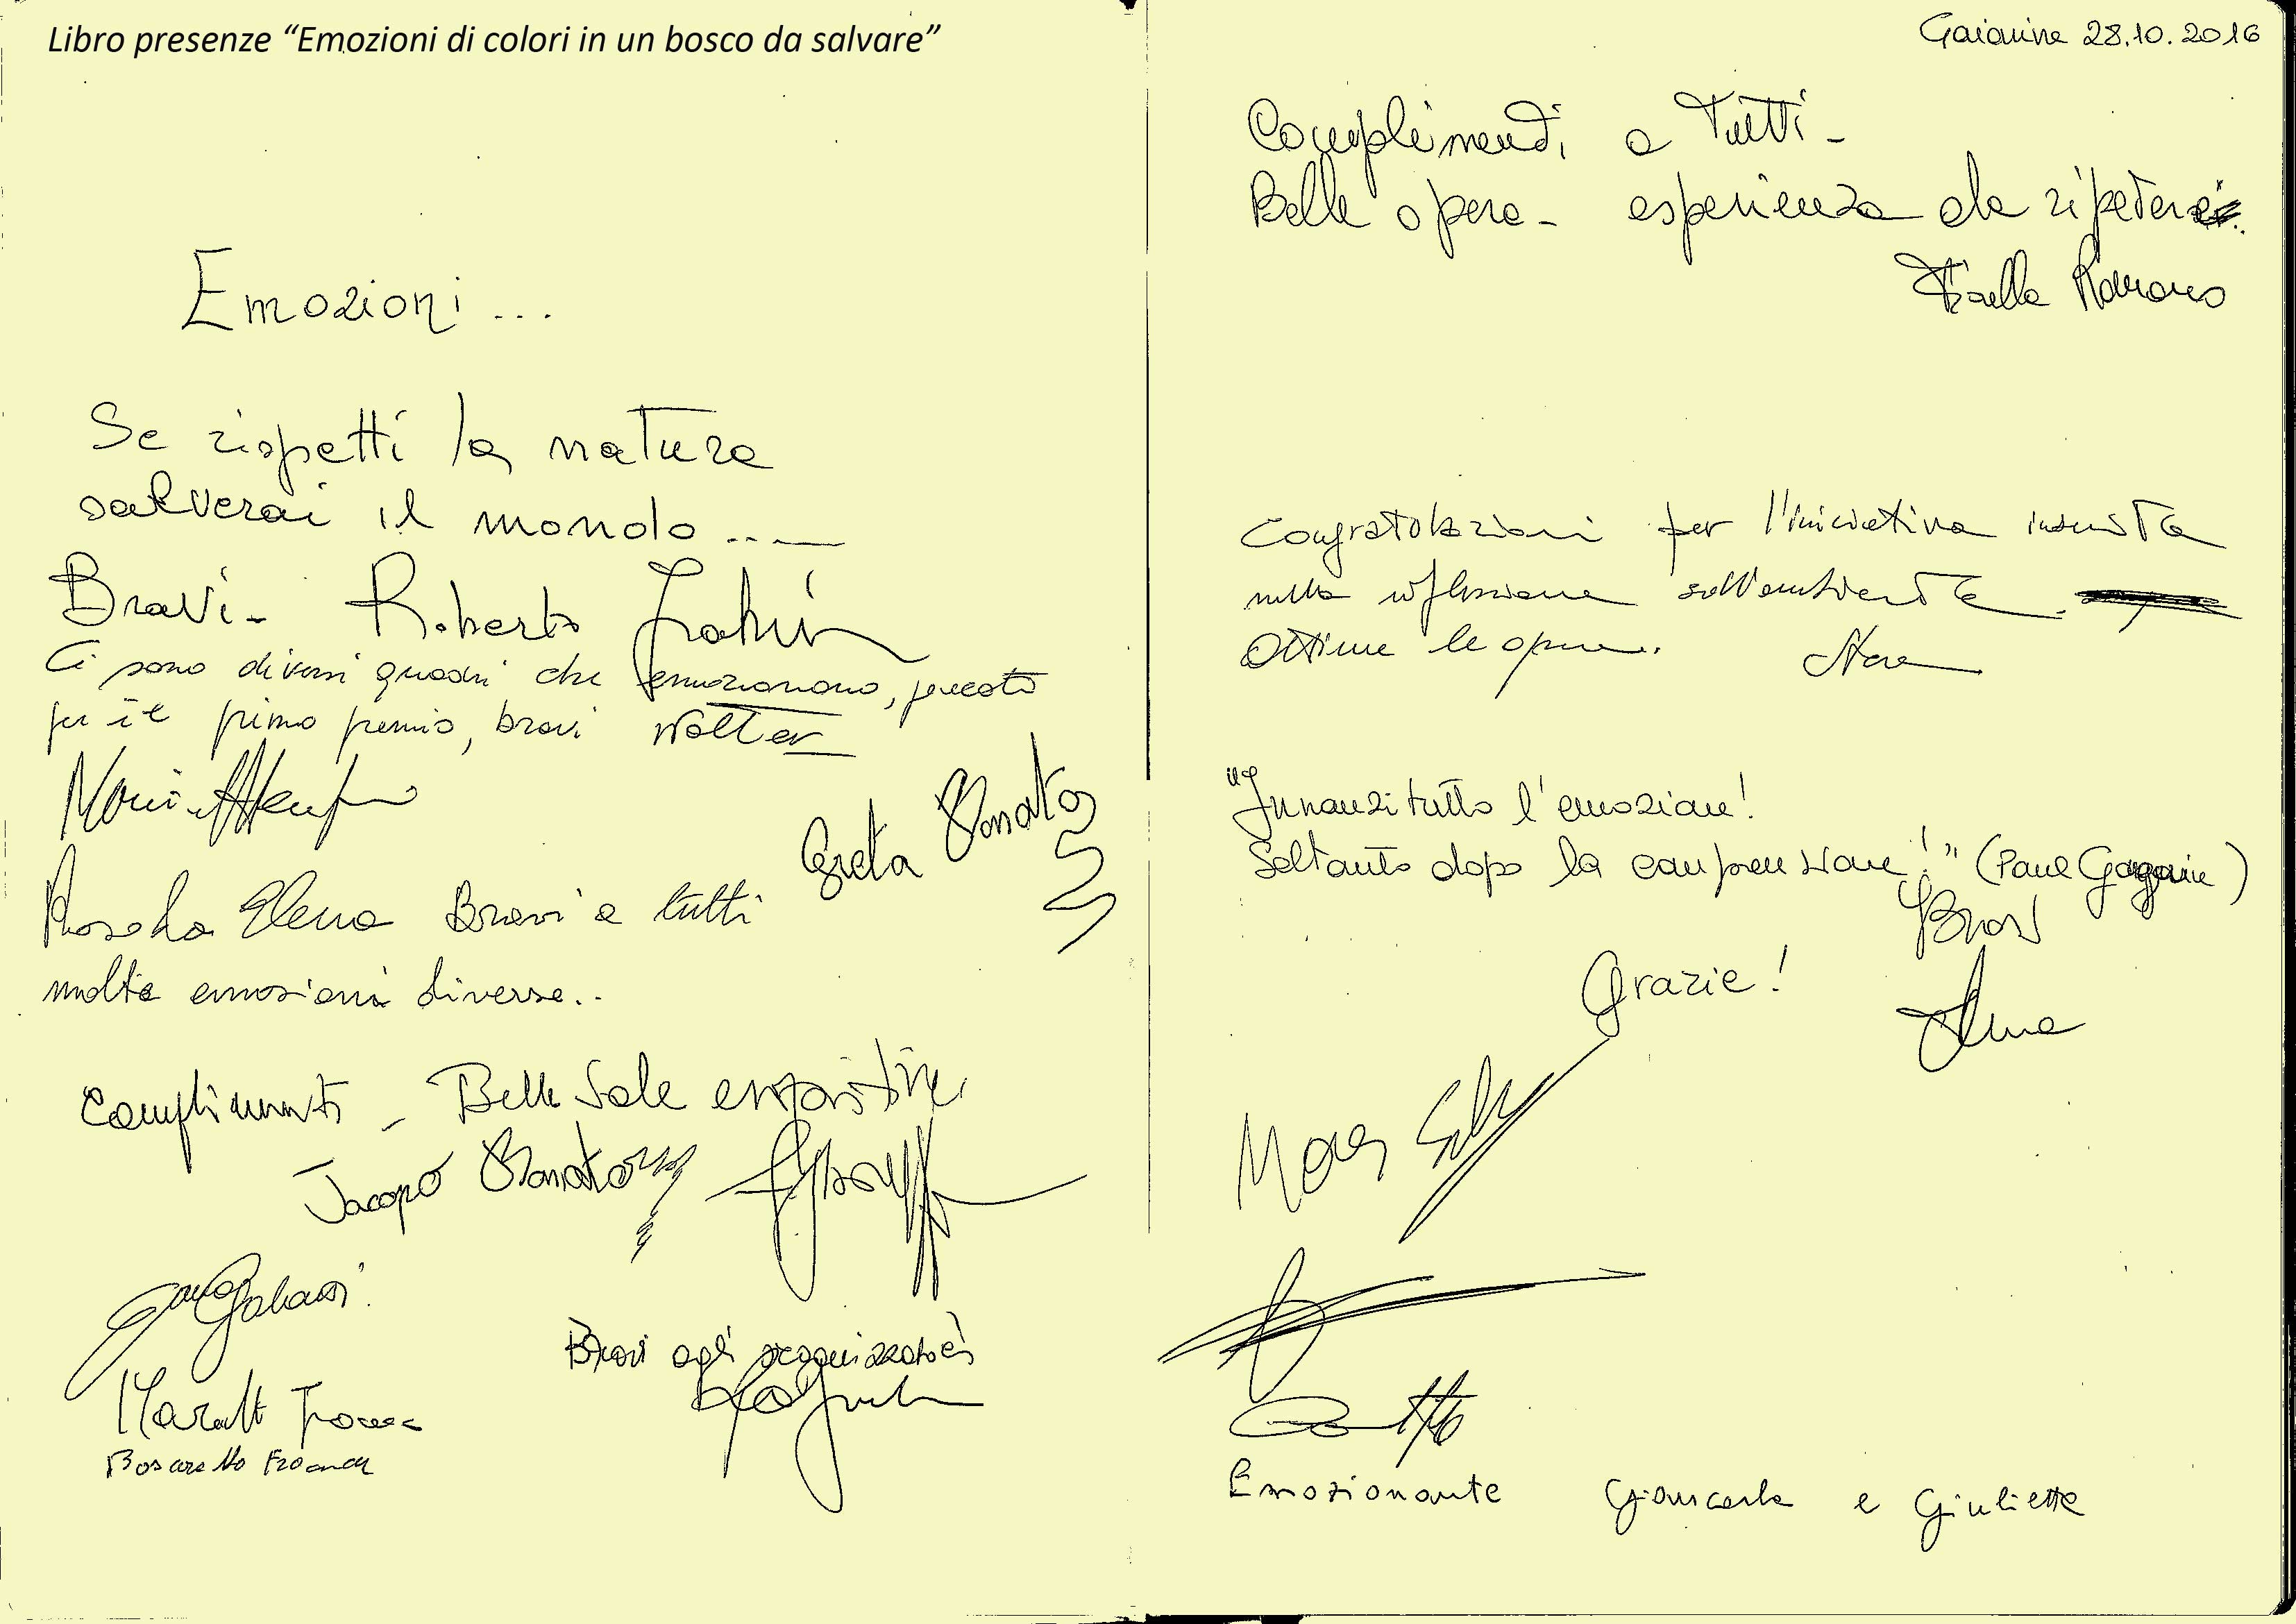 Libro presenze “Emozioni di colori in un bosco da salvare”
Emozioni...
Se rispetti la natura
salverai il mondo....
Bravi - Roberto
Ci sono diversi quadri che emozionano, peccato
per il primo premio, bravi Walter
Greta Donato
Elena Bravi a tutti
molte emozioni diverse..
Complimenti - Belle Sale espositive
Jacopo Donato
Bravi agli organizzatori
Franca
Gaiarine 28.10.2016
Complimenti a Tutti -
Belle opere - esperienza da ripetere.
Fiorella Romano
Congratulazioni per l'iniziativa inserita
nella riflessione sull'ambiente.
Ottime le opere.
"Innanzi tutto l'emozione!
Soltanto dopo la comprensione!" (Paul Gauguin)
Bravi
Grazie!
Emozionante Giancarla e Giulietta